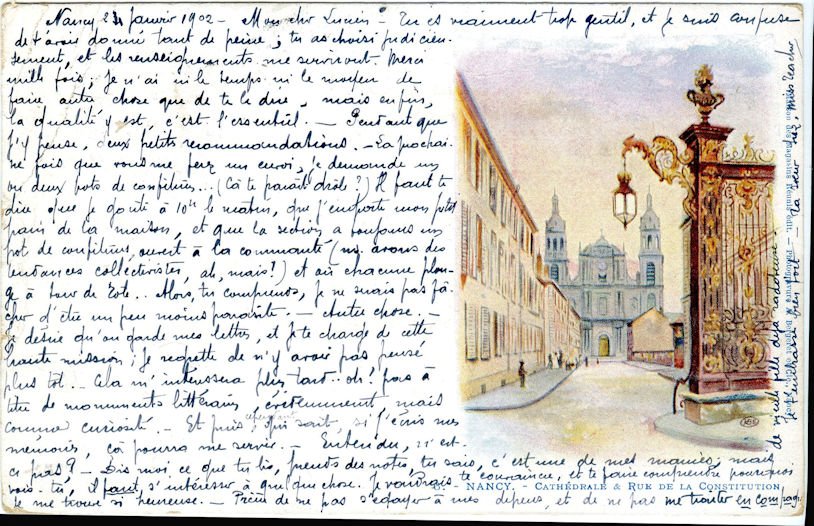 Nancy 24 Janvier 1902 - Mon cher Lucien - Tu es vraiment trop gentil, et je suis confuse
de t'avoir donné tant de peine; tu as choisi judicieu-
sement, et les renseignements me serviront. Merci
mille fois; je n'ai ni le temps ni le moyen de
faire autre chose que de te le dire, - mais enfin,
la qualité y est, c'est l'essentiel. - Pendant que
j'y pense, deux petites recommandations. - La prochai-
ne fois que vous me ferez un envoi, je demande un
ou deux pots de confitures... (Cà te paraît drôle ?) Il faut te
dire que je goûte à 10h le matin, que j'emporte mon petit
pain de la maison, et que la section a toujours un
pot de confitures ouvert à la communauté (ns. avons des
tendances collectivistes, ah, mais!) et où chacune plon-
ge à tour de rôle.. Alors, tu comprends, je ne serais pas fâ-
chée d'être un peu moins parasite. - Autre chose. -
Je désire qu'on garde mes lettres, et je te charge de cette
haute mission; je regrette de n'y avoir pas pensé
plus tôt.. Cela m'intéressera plus tard.. oh! pas à
titre de monuments littéraires, évidemment, mais
comme curiosité. - Et puis, qui sait, si j'écris mes
mémoires, cà pourra me servir. - Entendu, n'est-
ce pas? - Dis moi ce que tu lis, prends des notes, tu sais, c'est une de mes manies; mais
vois-tu, il faut s'intéresser à quelque chose. Je voudrais te convaincre, et te faire comprendre pourquoi
je me trouve si heureuse. - Prière de ne pas s'égayer à mes dépens, et de ne pas me traiter en
6. - NANCY. - CATHÉDRALE & RUE DE LA CONSTITUTION
de vieille fille déjà radoteuse.
Magasins Réunis Edit. -
La sœur